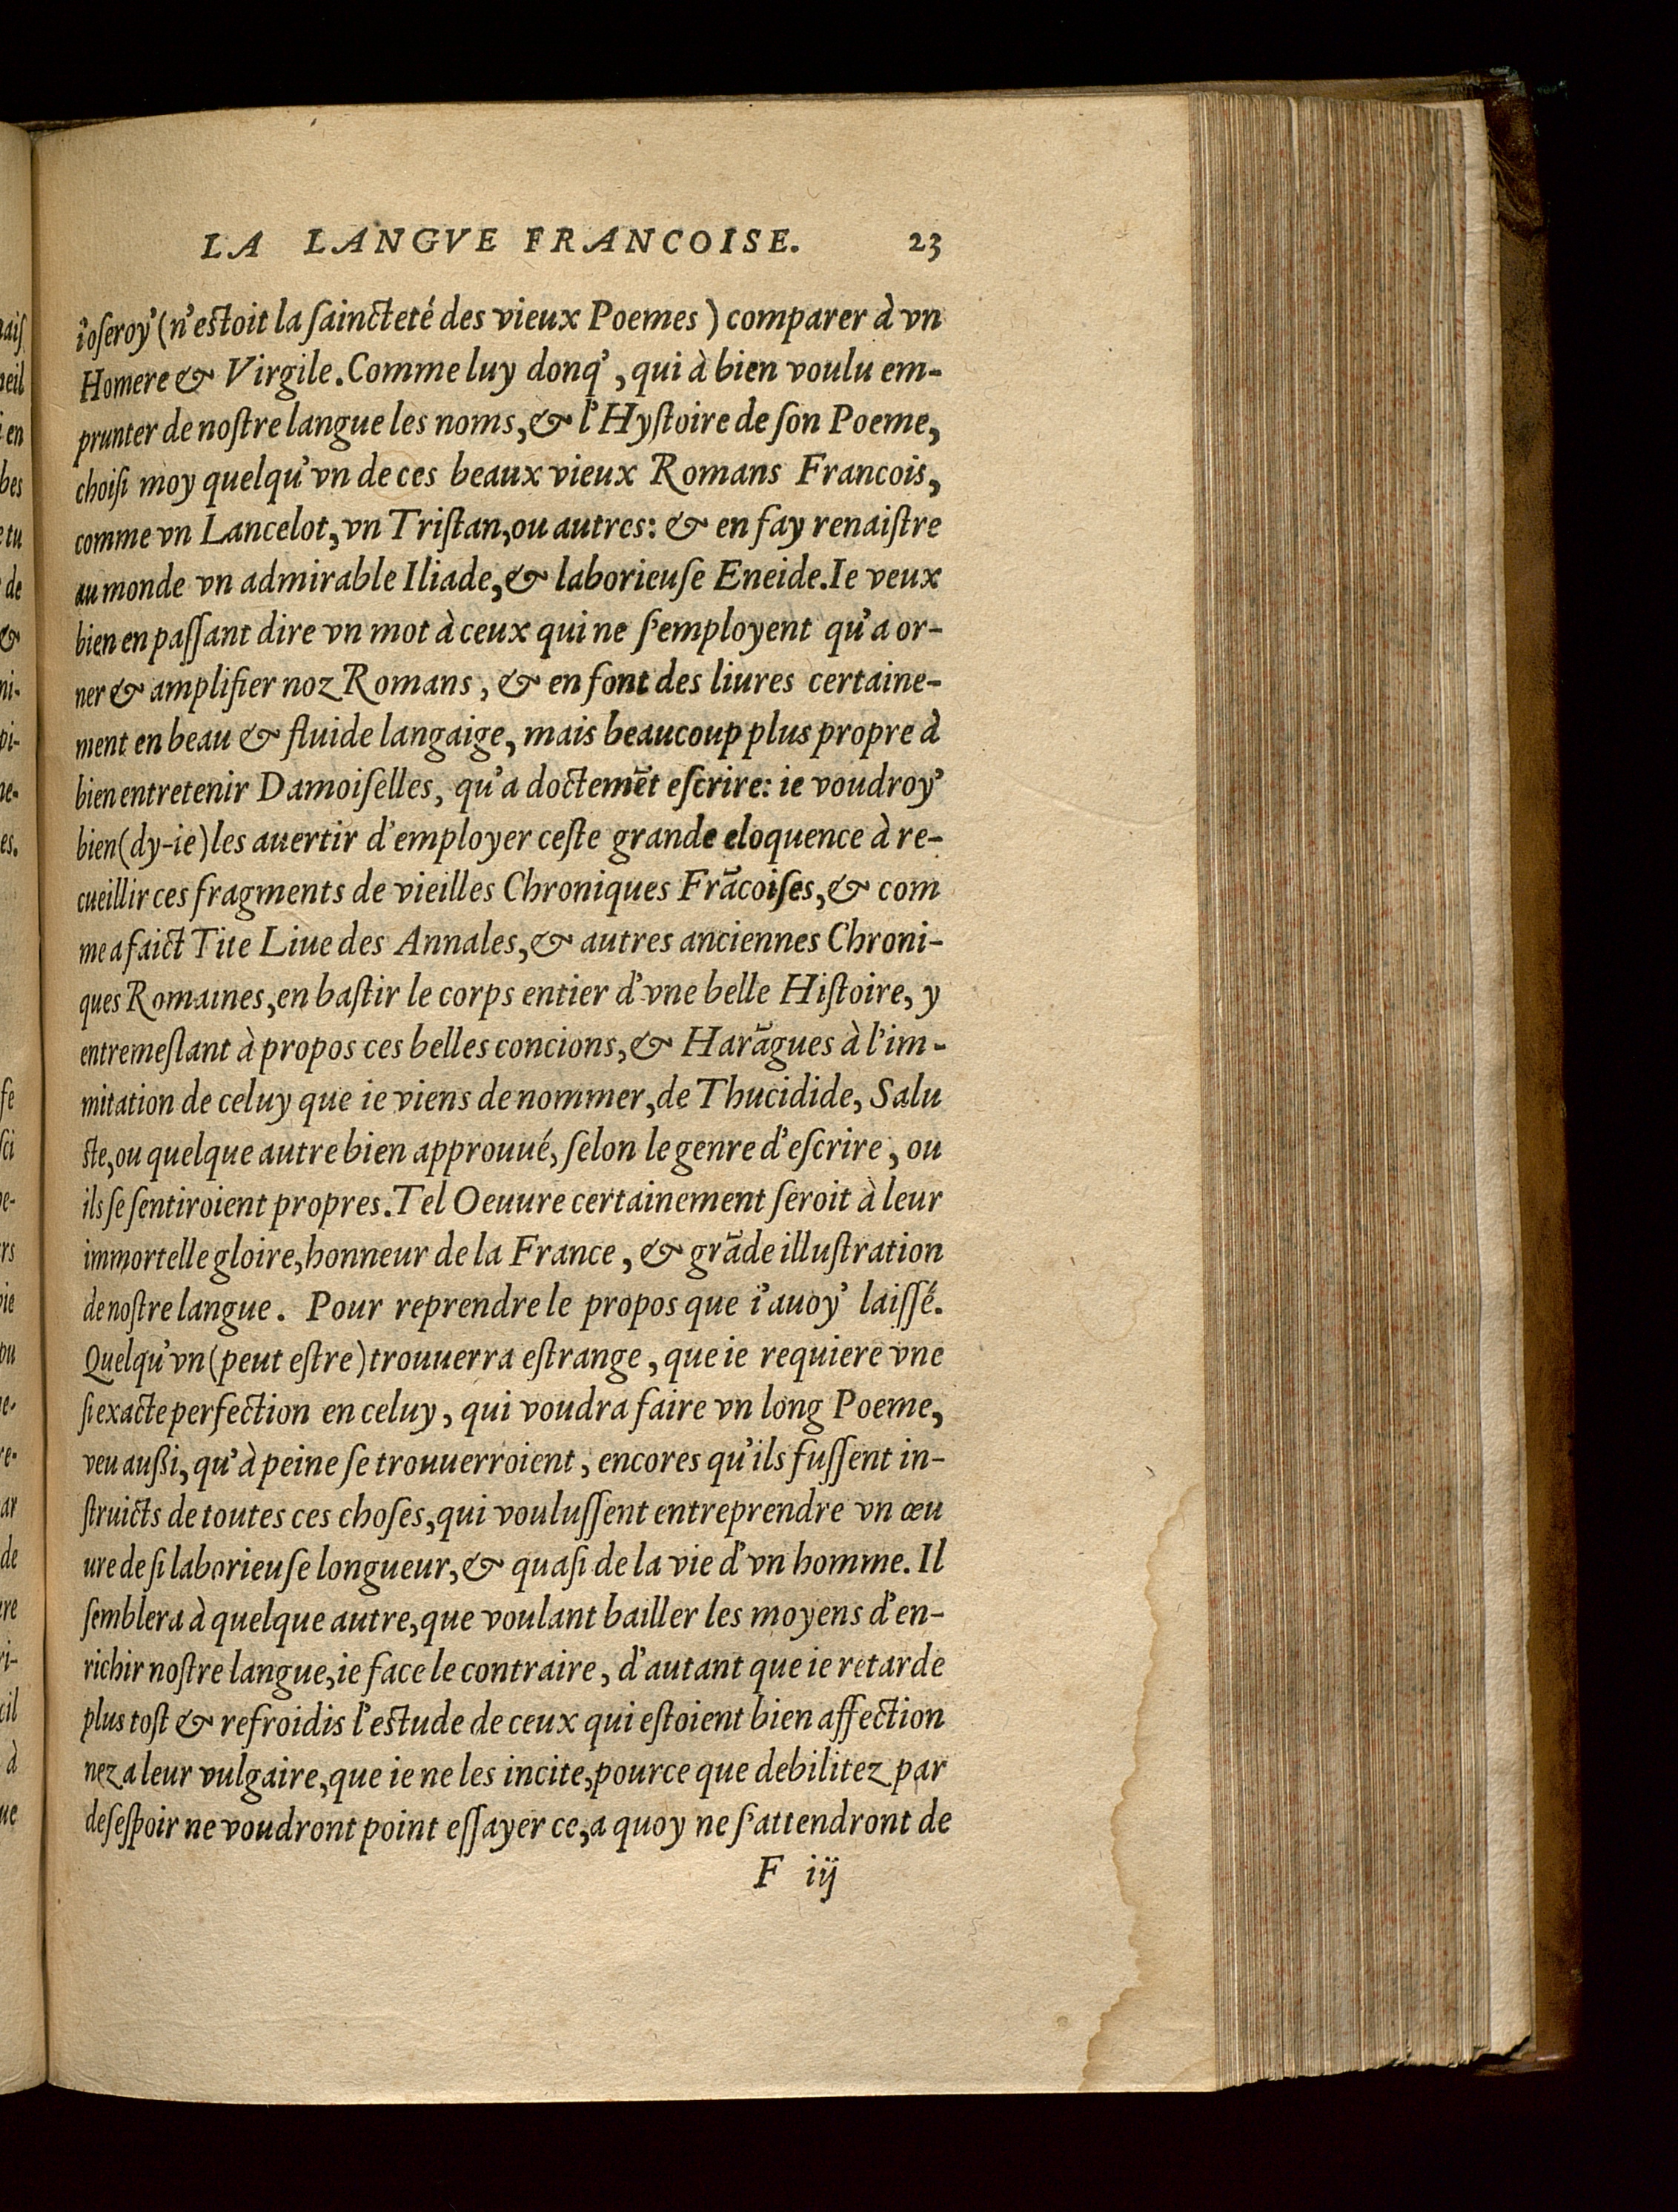 LA LANGVE FRANCOISE. 23
i'oſeroy' (n'eſtoit la ſaincteté des vieux Poemes) comparer à vn
Homere & Virgile. Comme luy donq', qui à bien voulu em-
prunter de noſtre langue les noms, & l'Hyſtoire de ſon Poeme,
choiſi moy quelqu'vn de ces beaux vieux Romans Francois,
comme vn Lancelot, vn Triſtan, ou autres: & en fay renaiſtre
au monde vn admirable Iliade, & laborieuſe Eneide. Ie veux
bien en paſſant dire vn mot à ceux qui ne ſ'employent qu'a or-
ner & amplifier noz Romans, & en font des liures certaine-
ment en beau & fluide langaige, mais beaucoup plus propre à
bien entretenir Damoiſelles, qu'a doctemēt eſcrire: ie voudroy'
bien (dy-ie) les auertir d'employer ceſte grande eloquence à re-
cueillir ces fragments de vieilles Chroniques Frācoiſes, & com
me a faict Tite Liue des Annales, & autres anciennes Chroni-
ques Romaines, en baſtir le corps entier d'vne belle Hiſtoire, y
entremeſlant à propos ces belles concions, & Harāgues à l'im-
mitation de celuy que ie viens de nommer, de Thucidide, Salu
ſte, ou quelque autre bien approuué, ſelon le genre d'eſcrire, ou
ils ſe ſentiroient propres. Tel Oeuure certainement ſeroit à leur
immortelle gloire, honneur de la France, & grāde illuſtration
de noſtre langue. Pour reprendre le propos que i'auoy' laiſſé.
Quelqu'vn (peut eſtre) trouuerra eſtrange, que ie requiere vne
ſi exacte perfection en celuy, qui voudra faire vn long Poeme,
veu außi, qu'à peine ſe trouuerroient, encores qu'ils fuſſent in-
ſtruicts de toutes ces choſes, qui vouluſſent entreprendre vn œu
ure de ſi laborieuſe longueur, & quaſi de la vie d'vn homme. Il
ſemblera à quelque autre, que voulant bailler les moyens d'en-
richir noſtre langue, ie face le contraire, d'autant que ie retarde
plus toſt & refroidis l'eſtude de ceux qui eſtoient bien affection
nez a leur vulgaire, que ie ne les incite, pource que debilitez par
deſeſpoir ne voudront point eſſayer ce, a quoy ne ſ'attendront de
F iij